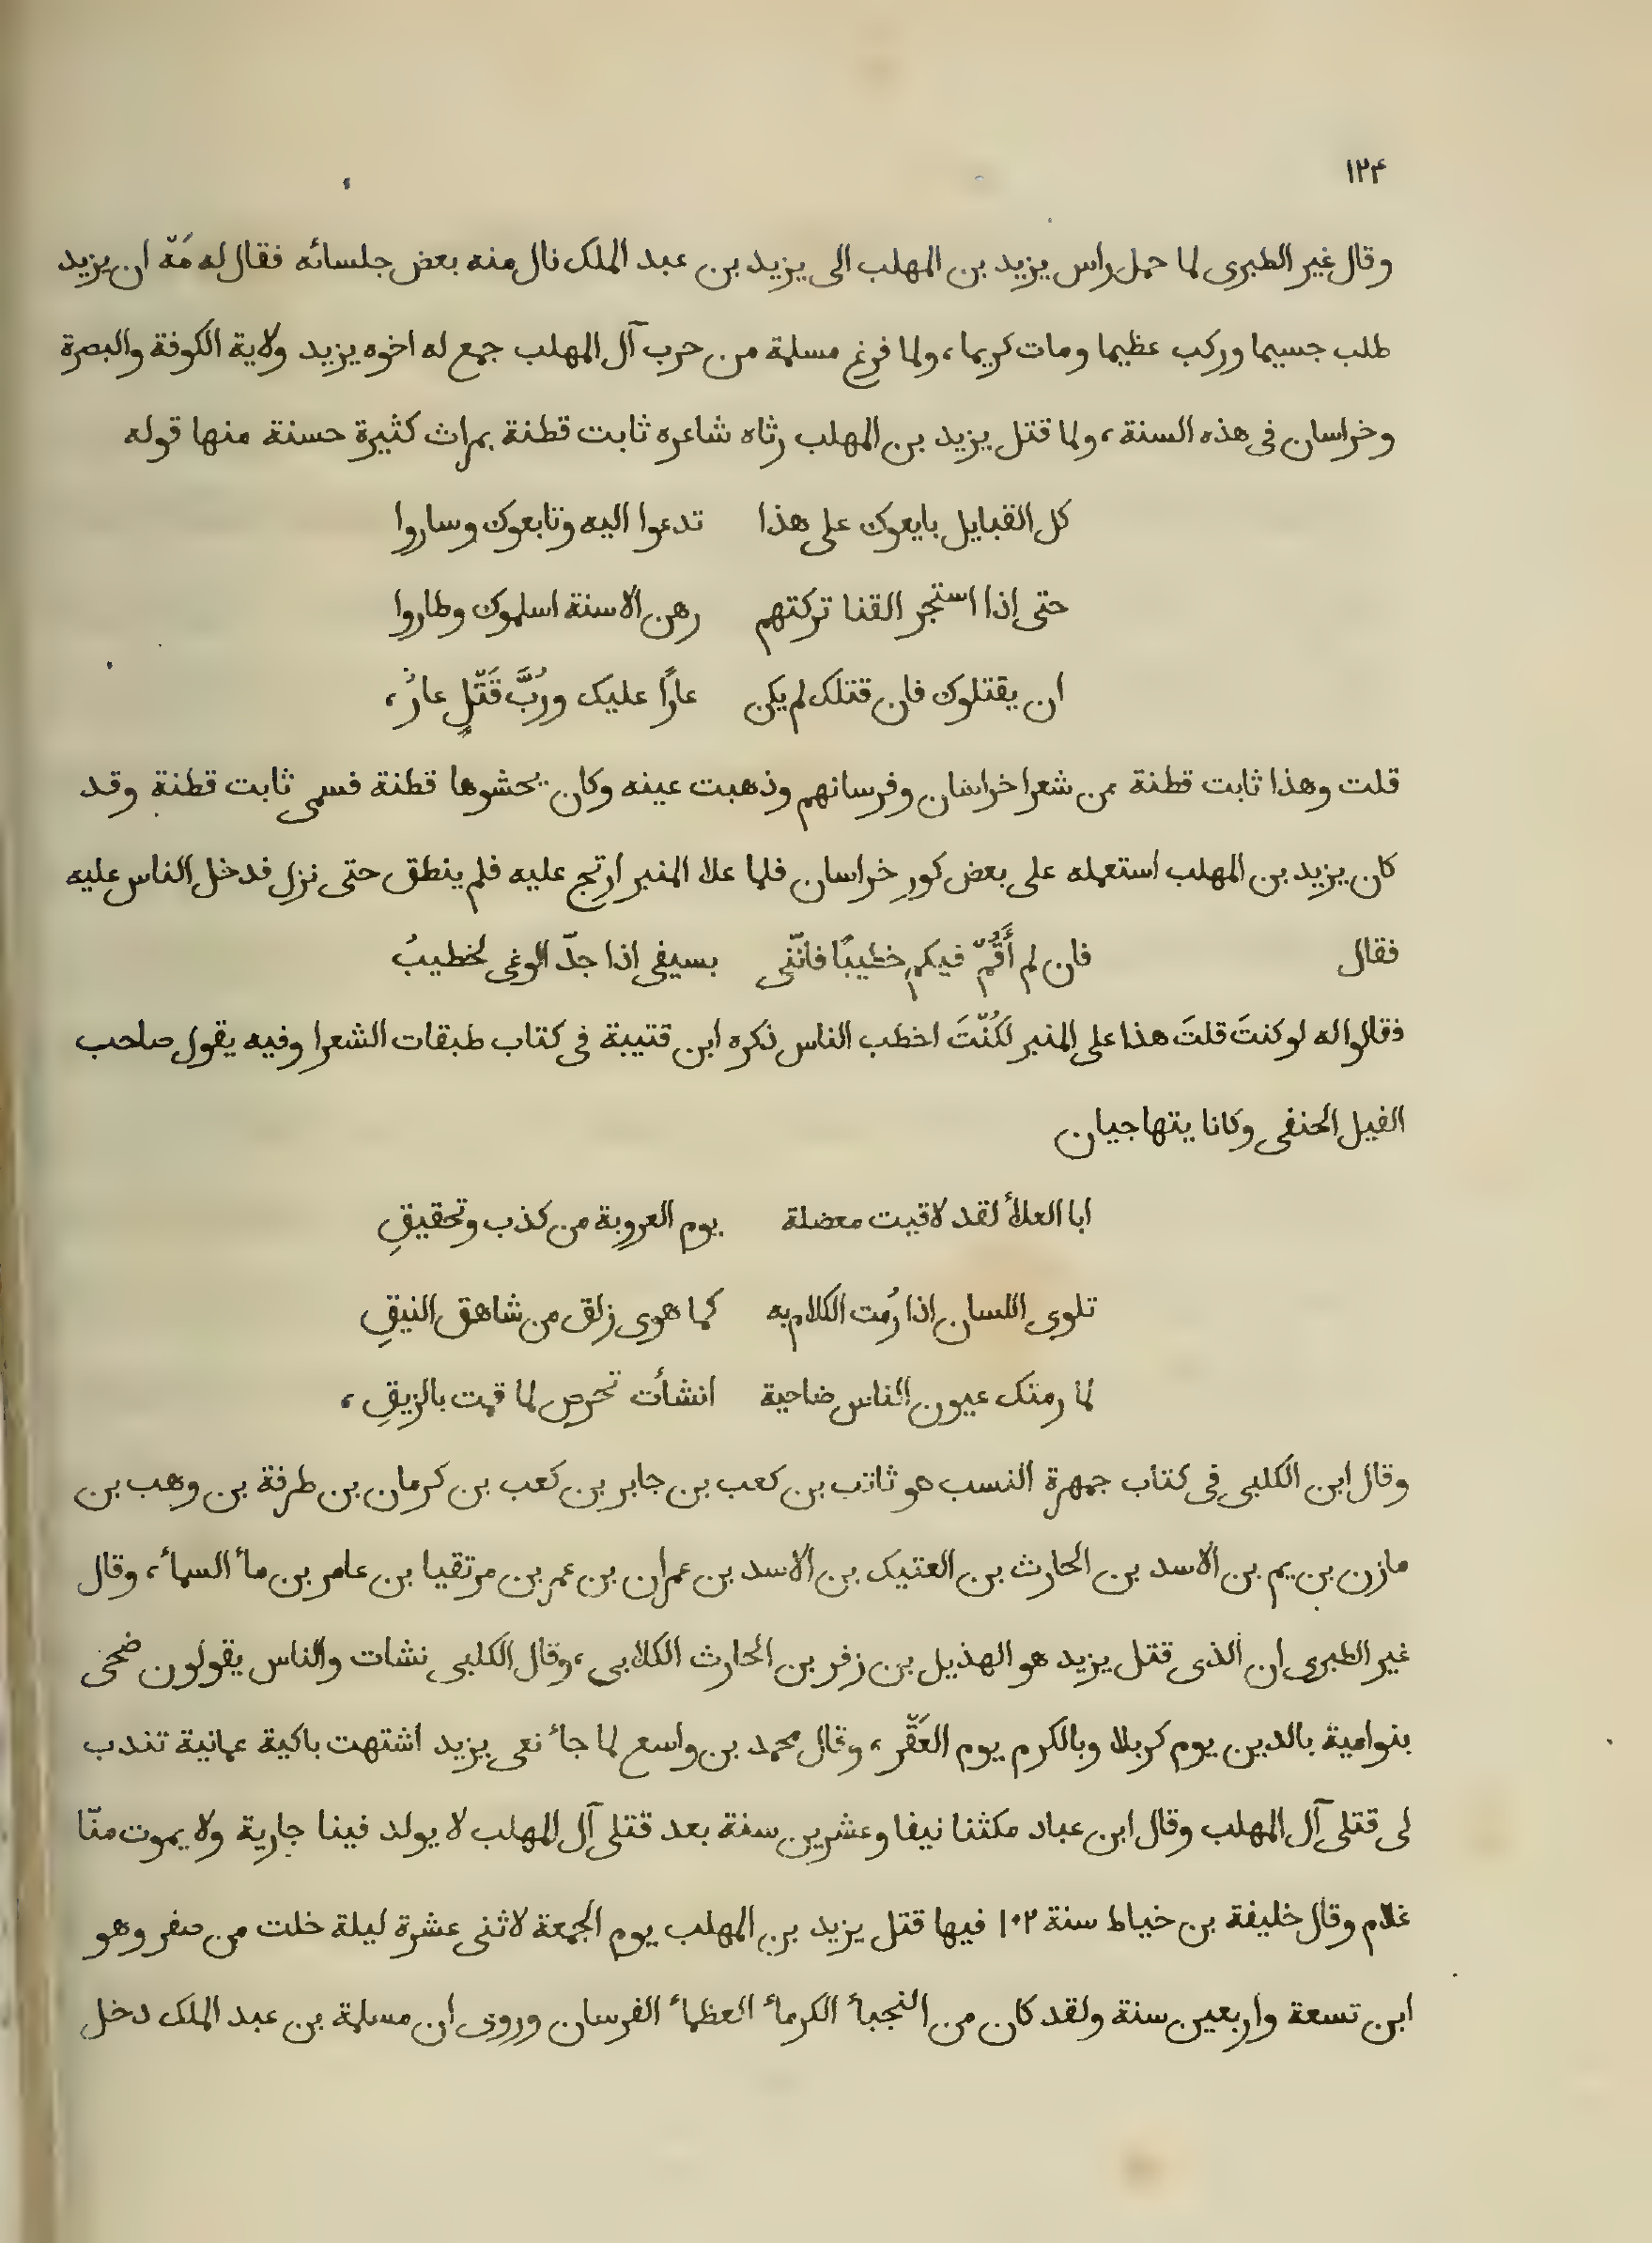 ١٢۴
وقال غير الطبرى لما حمل راس يزيد بن المهلب الى يزيد بن عبد الملک نال منه بعض جلسائه فقال له مَهْ ان يزيد
طلب جسيما وركب عظيما ومات كريما، ولما فرغ مسلمة من حرب آل المهلب جمع له اخوه يزيد ولاية الكوفة والبصرة
وخراسان فى هذه السنة، ولما قتل يزيد بن المهلب رثاه شاعره ثابت قطنة بمراث كثيرة حسنة منها قوله
كل القبايل بايعوك على هذا تدعوا اليه وتابعوك وساروا
حتى إذا استجر القنا تركتهم رهن الاسنة اسلموك وطاروا
ان يقتلوك فان قتلک لم يكن عارًا عليک ورُبَّ قَتْلٍ عارُ،
قلت وهذا ثابت قطنة من شعرا خراسان وفرسانهم وذهبت عينه وكان يحشوها قطنة فسمى ثابت قطنة وقد
كان يزيد بن المهلب استعمله على بعض كورِ خراسان فلما علا المنبر ارتج عليه فلم ينطق حتى نزل فدخل الناس عليه
فقال فان لم أَقُمْ فيكم خطيبًا فانّنى بسيفى اذا جدّ الوغى لخطيبُ
فقالوا له لو كنتَ قلتَ هذا على المنبر لَكُنْتَ اخطب الناس ذكره ابن قتيبة فى كتاب طبقات الشعرا وفيه يقول صاحب
الفيل الحنفى وكانا يتهاجيان
ابا العلاٴ لقد لاقيت معضلة يوم العروبة من كذب وتحقيقِ
تلوى اللسان اذا رُمت الكلام به كما هوى زلق من شاهق النيقِ
لما رمتک عيون الناس ضاحية انشأت تحرص لما قمت بالزيقِ،
وقال ابن الكلبى فى كتاب جمهرة النسب هو ثابت بن كعب بن جابر بن كعب بن كرمان بن طرفة بن وهب بن
مازن بن يم بن الاسد بن الحارث بن العتيک بن الاسد بن عمران بن عمر بن مرتقيا بن عامر بن ماٴ السماٴ، وقال
غير الطبرى ان الذى قتل يزيد هو الهذيل بن زفر بن الحارث الكلابى، وقال الكلبى نشات والناس يقولون ضحى
بنوامية بالدين يوم كربلا وبالكرم يوم العَقْر، وقال محمد بن واسع لما جاٴ نعى يزيد اشتهت باكية عمانية تندب
لى قتلى آل المهلب وقال ابن عباد مكثنا نيفا وعشرين سنة بعد قتلى آل المهلب لا يولد فينا جارية ولا يموت منّا
غلام وقال خليفة بن خياط سنة ١٠٢ فيها قتل يزيد بن المهلب يوم الجمعة لاثنى عشرة ليلة خلت من صفر وهو
ابن تسعة واربعين سنة ولقد كان من النجباٴ الكرماٴ العظماٴ الفرسان وروى ان مسلمة بن عبد الملک دخل